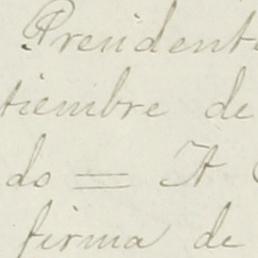 President
tiembre de
do = A
firma de